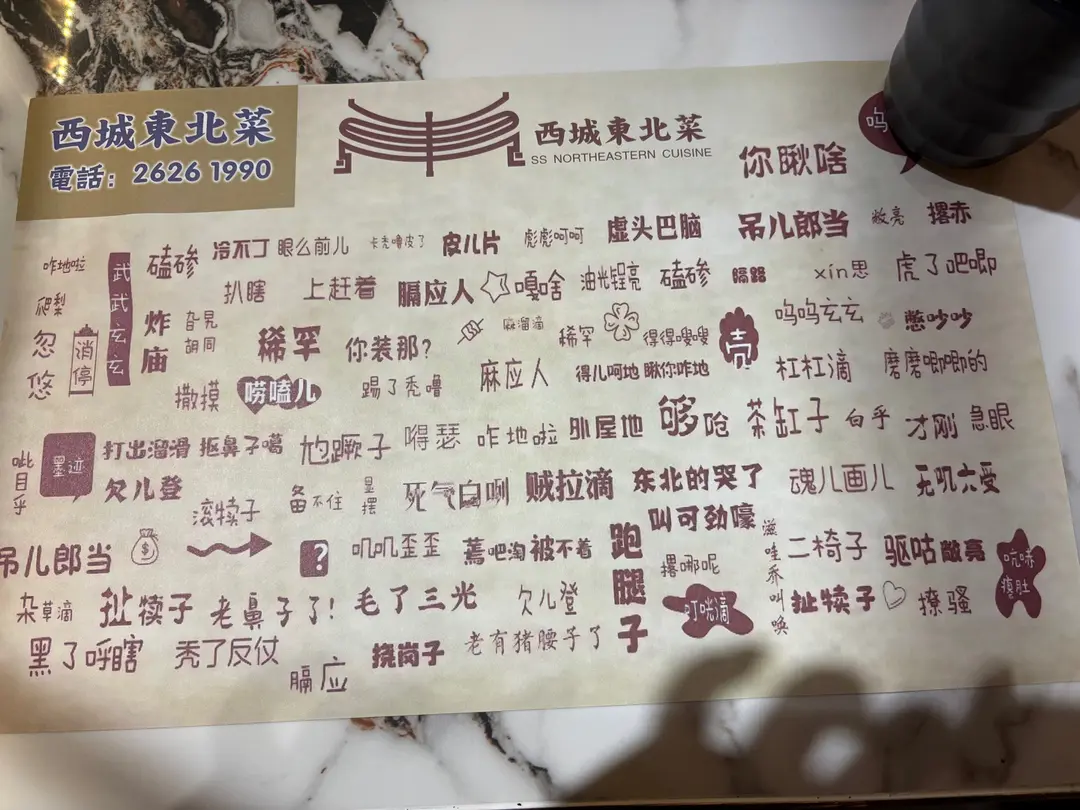 西城東北菜
電話：2626 1990
西城東北菜
SS NORTHEASTERN CUISINE
你瞅啥
呜
咋地啦
武武玄玄
磕碜
冷不丁
眼么前儿
卡秃噜皮了
皮儿片
彪彪呵呵
虚头巴脑
吊儿郎当
敞亮
撂赤
爬犁
扒瞎
上赶着
膈应人
嘎啥
油光锃亮
磕碜
隔路
xín思
虎了吧唧
忽悠
消停
炸庙
旮旯胡同
稀罕
你装那?
麻溜滴
稀罕
得得嗖嗖
呜呜玄玄
憨吵吵
撒摸
唠嗑儿
踢了秃噜
麻应人
得儿呵地
瞅你咋地
杠杠滴
磨磨唧唧的
呲目乎
墨迹
打出溜滑
抠鼻子噶
尥蹶子
嘚瑟
咋地啦
外屋地
够呛
茶缸子
白乎
才刚
急眼
欠儿登
滚犊子
备不住
显摆
死气白咧
贼拉滴
东北的哭了
魂儿画儿
无叽六受
吊儿郎当
?
叽叽歪歪
蔫吧淘
被不着
跑腿子
叫可劲嚎
撂哪呢
滋哇乔叫唤
二椅子
驱咕
敞亮
杂草滴
扯犊子
老鼻子了!
毛了三光
欠儿登
叮咣滴
扯犊子
撩骚
吭哧瘪肚
黑了呼瞎
秃了反仗
膈应
挠岗子
老有猪腰子了